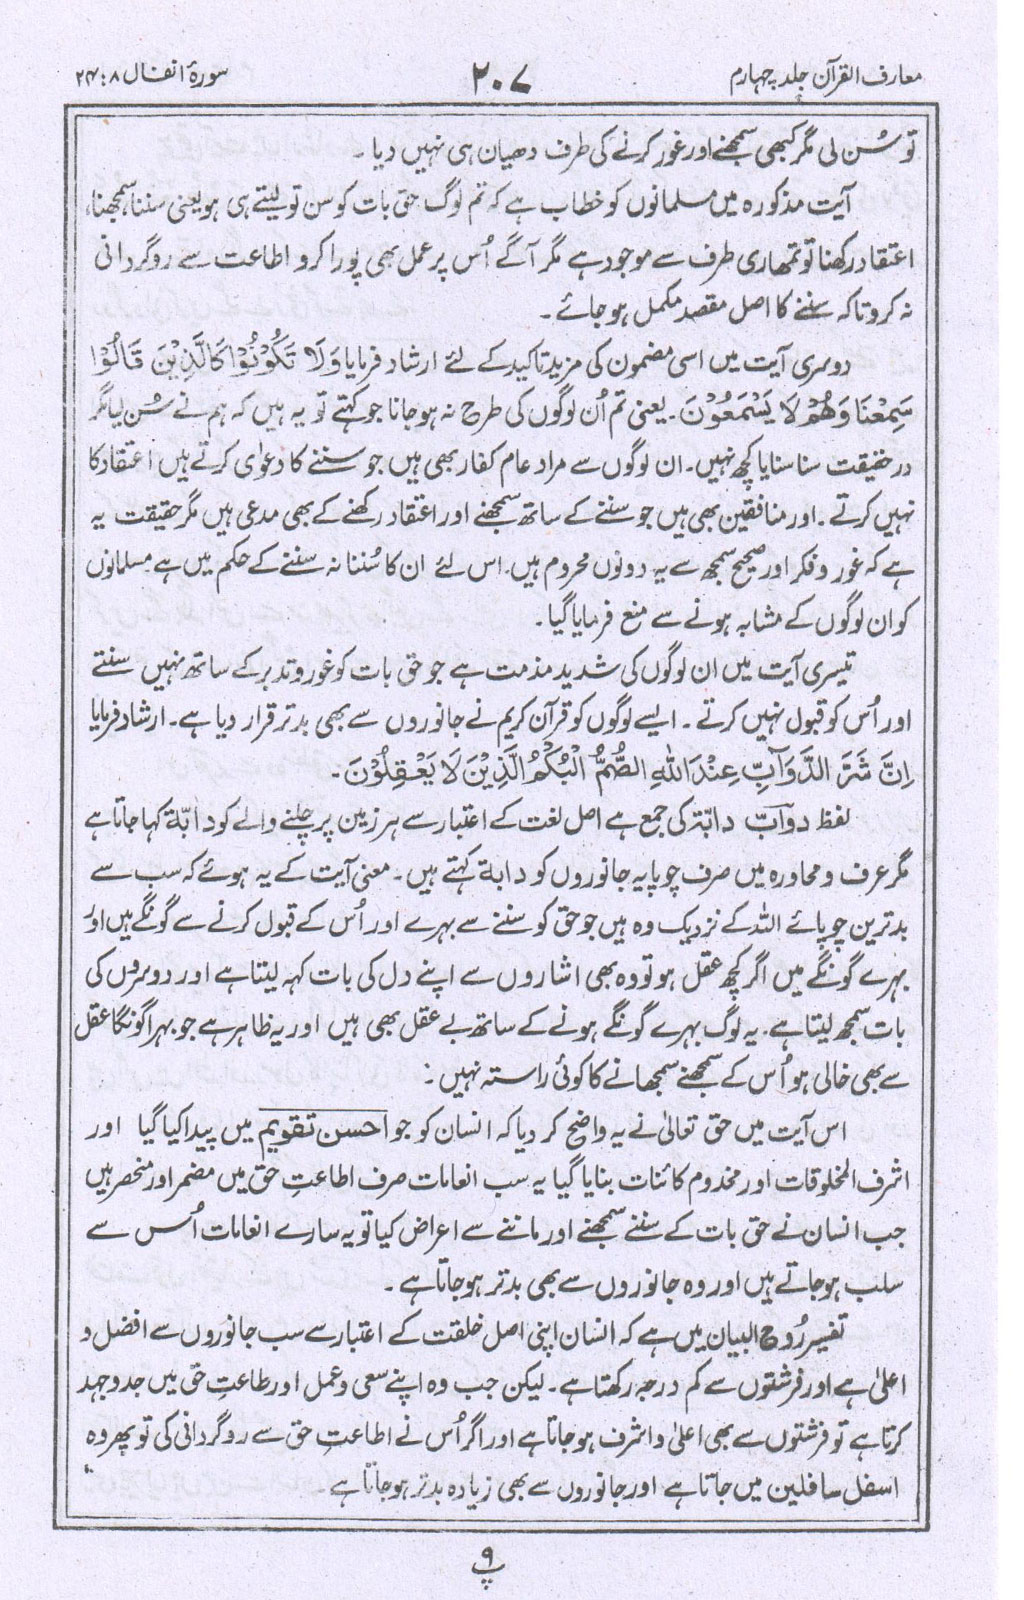 معارف القرآن جلد چہارم
۲۰۷
سورۂ انفال ۸ : ۲۴
تو سُن لی مگر کبھی سمجھنے اور غور کرنے کی طرف دھیان ہی نہیں دیا۔
آیت مذکورہ میں مسلمانوں کو خطاب ہے کہ تم لوگ حق بات کو سن تو لیتے ہی ہو یعنی سننا، سمجھنا،
اعتقاد رکھنا تو تمھاری طرف سے موجود ہے مگر آگے اُس پر عمل بھی پورا کرو اطاعت سے روگردانی
نہ کرو تاکہ سننے کا اصل مقصد مکمل ہو جائے۔
دوسری آیت میں اسی مضمون کی مزید تاکید کے لئے ارشاد فرمایا وَلَا تَكُوْنُوْا كَالَّذِيْنَ قَالُوْا
سَمِعْنَا وَهُمْ لَا يَسْمَعُوْنَ۔ یعنی تم اُن لوگوں کی طرح نہ ہو جانا جو کہتے تو یہ ہیں کہ ہم نے سُن لیا مگر
در حقیقت سنا سنایا کچھ نہیں۔ ان لوگوں سے مراد عام کفار بھی ہیں جو سننے کا دعوٰی کرتے ہیں اعتقاد کا
نہیں کرتے۔ اور منافقین بھی ہیں جو سننے کے ساتھ سمجھنے اور اعتقاد رکھنے کے بھی مدعی ہیں مگر حقیقت یہ
ہے کہ غور و فکر اور صحیح سمجھ سے یہ دونوں محروم ہیں۔ اس لئے ان کا سُننا نہ سننے کے حکم میں ہے مسلمانوں
کو ان لوگوں کے مشابہ ہونے سے منع فرمایا گیا۔
تیسری آیت میں ان لوگوں کی شدید مذمت ہے جو حق بات کو غور و تدبر کے ساتھ نہیں سنتے
اور اُس کو قبول نہیں کرتے۔ ایسے لوگوں کو قرآن کریم نے جانوروں سے بھی بدتر قرار دیا ہے۔ ارشاد فرمایا
اِنَّ شَرَّ الدَّوَآبِّ عِنْدَ اللهِ الصُّمُّ الْبُكْمُ الَّذِيْنَ لَا يَعْقِلُوْنَ۔
لفظ دوآبّ دابّۃ کی جمع ہے اصل لغت کے اعتبار سے ہر زمین پر چلنے والے کو دابّۃ کہا جاتا ہے
مگر عرف و محاورہ میں صرف چوپایہ جانوروں کو دابۃ کہتے ہیں۔ معنی آیت کے یہ ہوئے کہ سب سے
بدترین چوپائے اللہ کے نزدیک وہ ہیں جو حق کو سننے سے بہرے اور اُس کے قبول کرنے سے گونگے ہیں اور
بہرے گونگے میں اگر کچھ عقل ہو تو وہ بھی اشاروں سے اپنے دل کی بات کہہ لیتا ہے اور دوسروں کی
بات سمجھ لیتا ہے۔ یہ لوگ بہرے گونگے ہونے کے ساتھ بے عقل بھی ہیں اور یہ ظاہر ہے جو بہرا گونگا عقل
سے بھی خالی ہو اُس کے سمجھنے سمجھانے کا کوئی راستہ نہیں۔
اس آیت میں حق تعالیٰ نے یہ واضح کر دیا کہ انسان کو جو احسن تقویم میں پیدا کیا گیا اور
اشرف المخلوقات اور مخدوم کائنات بنایا گیا یہ سب انعامات صرف اطاعتِ حق میں مضمر اور منحصر ہیں
جب انسان نے حق بات کے سننے سمجھنے اور ماننے سے اعراض کیا تو یہ سارے انعامات اُس سے
سلب ہو جاتے ہیں اور وہ جانوروں سے بھی بدتر ہو جاتا ہے۔
تفسیر رُوح البیان میں ہے کہ انسان اپنی اصل خلقت کے اعتبار سے سب جانوروں سے افضل و
اعلیٰ ہے اور فرشتوں سے کم درجہ رکھتا ہے۔ لیکن جب وہ اپنے سعی و عمل اور طاعتِ حق میں جدوجہد
کرتا ہے تو فرشتوں سے بھی اعلیٰ و اشرف ہو جاتا ہے اور اگر اُس نے اطاعتِ حق سے روگردانی کی تو پھر وہ
اسفل سافلین میں جاتا ہے اور جانوروں سے بھی زیادہ بدتر ہو جاتا ہے۔
پ ۹